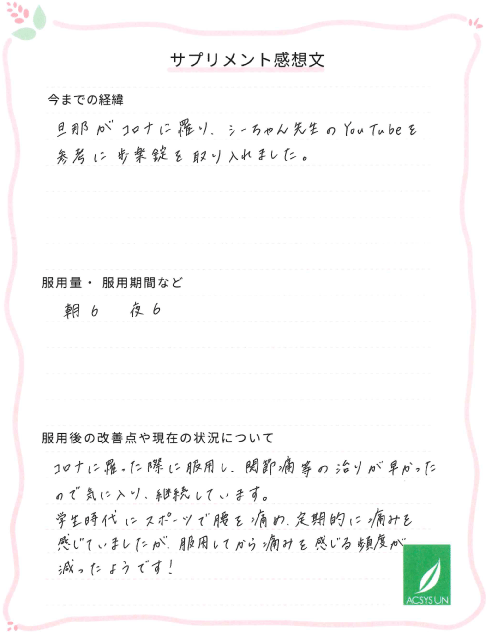 サプリメント感想文
今までの経緯
旦那がコロナに罹り、シーちゃん先生のYouTubeを
参考に歩楽錠を取り入れました。
服用量・服用期間など
朝6 夜6
服用後の改善点や現在の状況について
コロナに罹った際に服用し、関節痛等の治りが早かった
ので気に入り、継続しています。
学生時代にスポーツで腰を痛め、定期的に痛みを
感じていましたが、服用してから痛みを感じる頻度が
減ったようです!
ACSYS UN